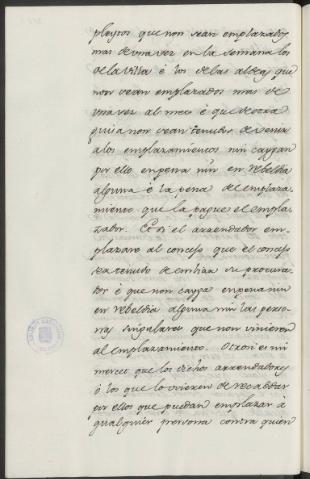 pleytos que non sean emplazados
mas de una vez en la semana los
de la villa é los de las aldeas que
non sean emplazados mas de
una vez al mes é que de otra
guisa non sean tenudos de venir
a los emplazamientos nin cayan
por ello en pena nin en rebeldia
alguna é la pena del emplaza-
miento que la pague el empla-
zador. Et si el arrendador em-
plazare al concejo que el concejo
sea tenudo de enbiar su procura-
dor é que non caya en pena nin
en rebeldia alguna nin las perso-
nas singulares que non vinieren
al emplazamiento. Otrosi es mi
merced que los dichos arrendadores
é los que lo ovieren de recabdar
por ellos que puedan emplazar á
qualquier persona contra quien